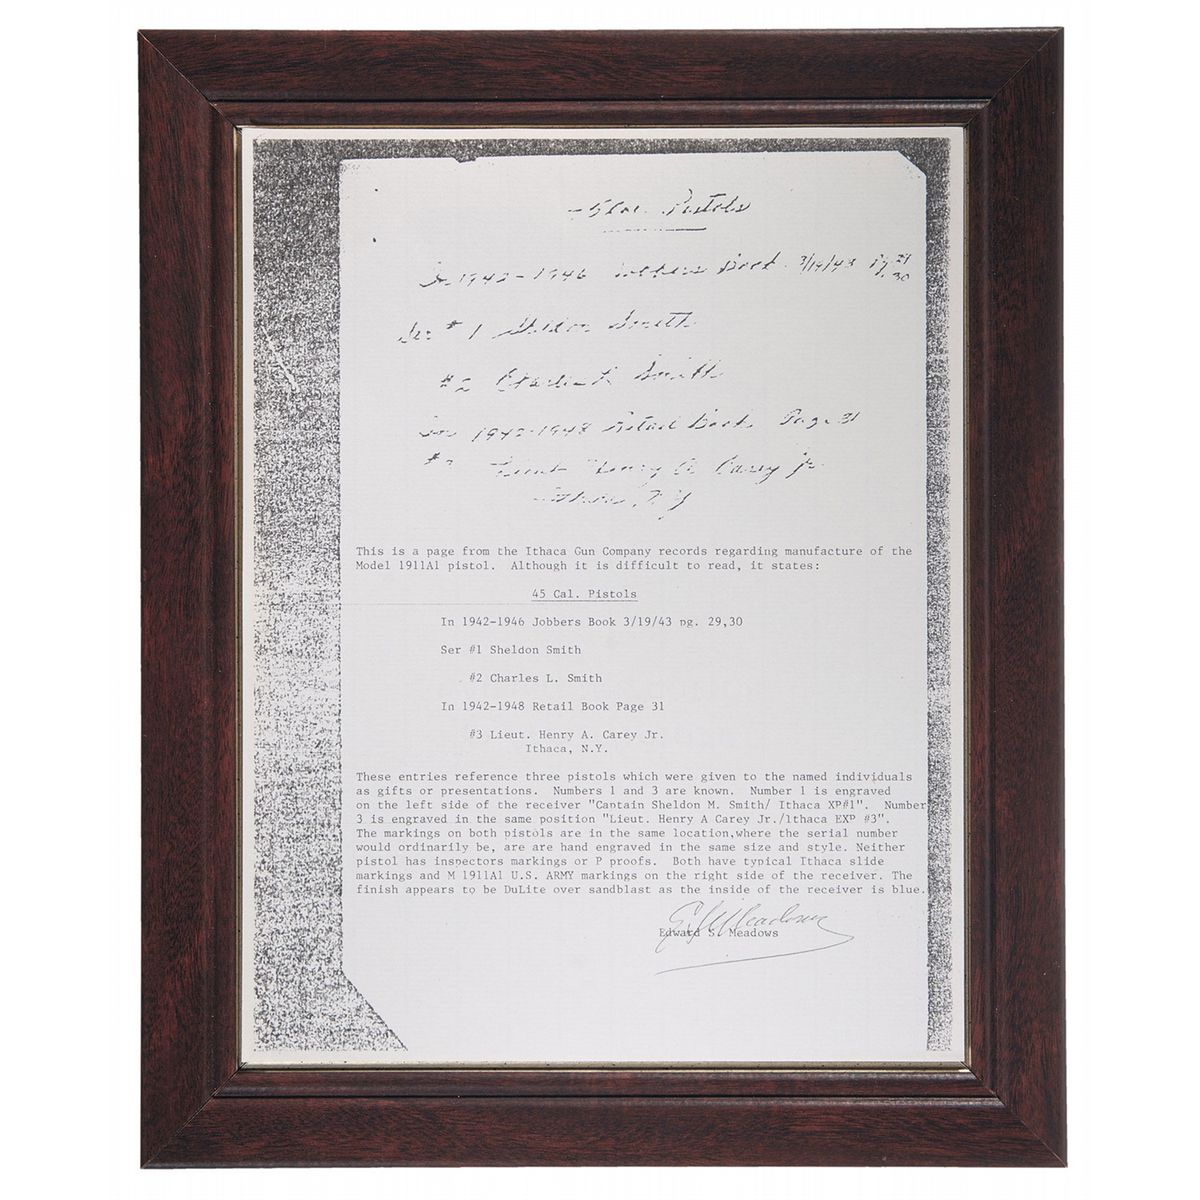 Pistols
In 1942-1946 Jobbers Book 3/19/43 Pg. 29
30
Ser # 1 Sheldon Smith
#2 Charles L Smith
In 1942-1948 Retail Book Page 31
Lieut Henry A. Carey Jr.
N.Y
This is a page from the Ithaca Gun Company records regarding manufacture of the
Model 1911A1 pistol. Although it is difficult to read, it states:
45 Cal. Pistols
In 1942-1946 Jobbers Book 3/19/43 pg. 29,30
Ser #1 Sheldon Smith
#2 Charles L. Smith
In 1942-1948 Retail Book Page 31
#3 Lieut. Henry A. Carey Jr.
Ithaca, N.Y.
These entries reference three pistols which were given to the named individuals
as gifts or presentations. Numbers 1 and 3 are known. Number 1 is engraved
on the left side of the receiver "Captain Sheldon M. Smith/ Ithaca XP#1". Number
3 is engraved in the same position "Lieut. Henry A Carey Jr./Ithaca EXP #3".
The markings on both pistols are in the same location,where the serial number
would ordinarily be, are are hand engraved in the same size and style. Neither
pistol has inspectors markings or P proofs. Both have typical Ithaca slide
markings and M 1911A1 U.S. ARMY markings on the right side of the receiver. The
finish appears to be DuLite over sandblast as the inside of the receiver is blue.
E S Meadows
Edward S. Meadows